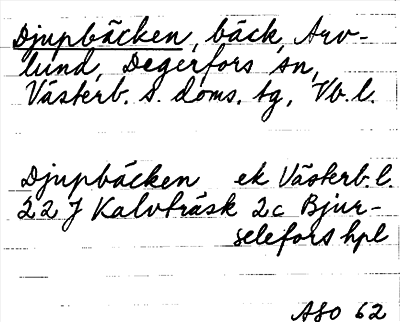 Djupbäcken, bäck, Arv-
lund, Degerfors sn,
Västerb. s. doms. tg, Vb. l.
Djupbäcken ek Västerb. l.
22 J Kalvträsk 2c Bjur-
selefors hpl
ASO 62